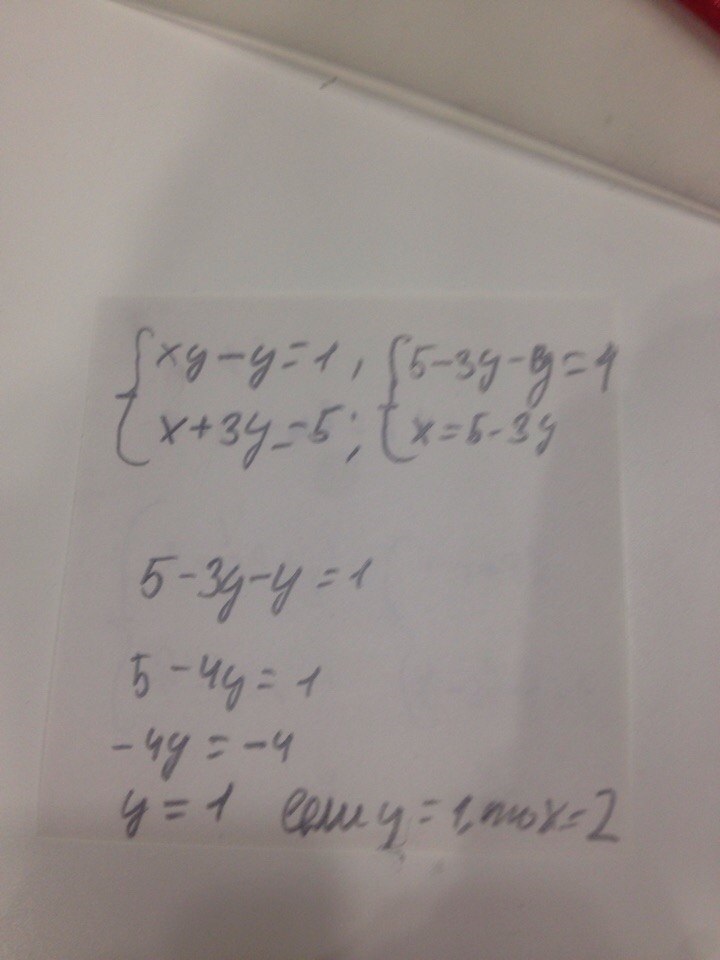 {xy-y=1, {5-3y-y=1
{x+3y=5; {x=5-3y
5-3y-y=1
5-4y=1
-4y=-4
y=1 если y=1, то x=2